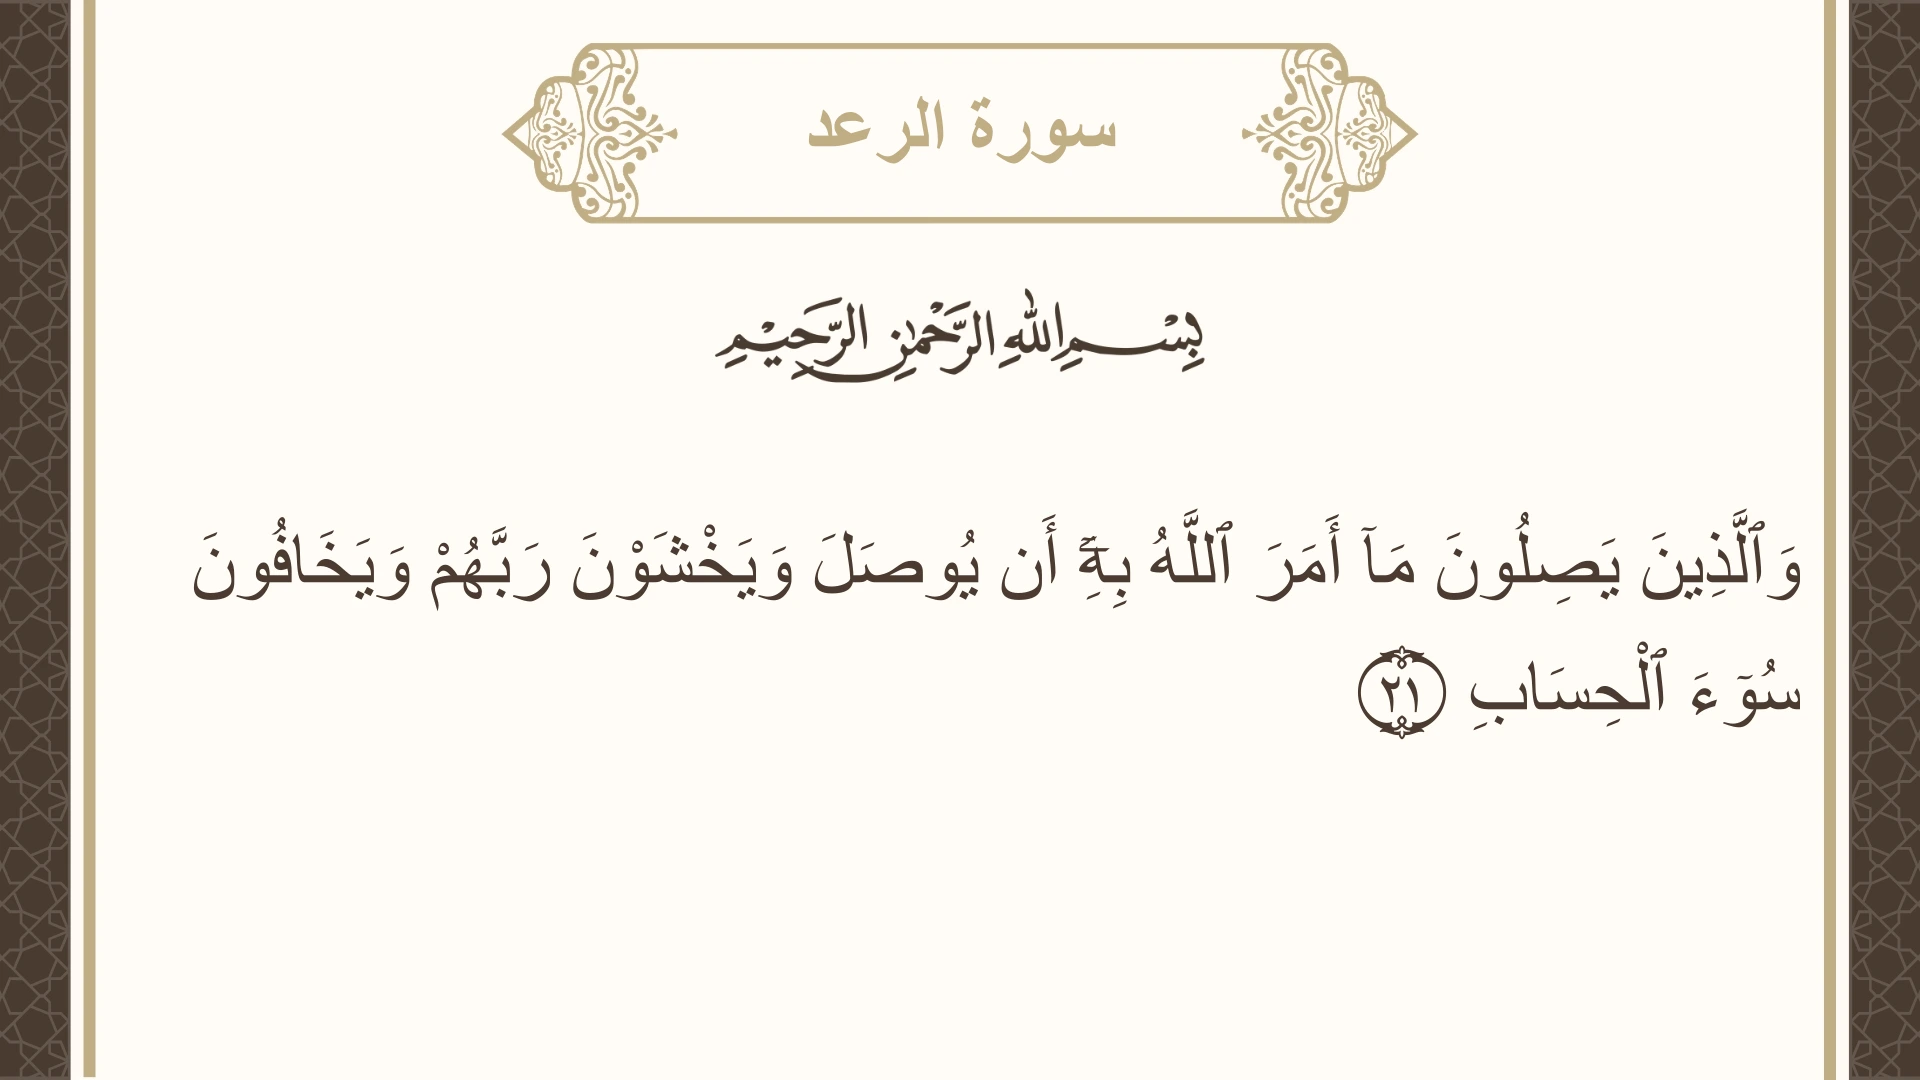 سورة الرعد
بِسْمِ اللهِ الرَّحْمٰنِ الرَّحِيْمِ
وَٱلَّذِينَ يَصِلُونَ مَآ أَمَرَ ٱللَّهُ بِهِۦٓ أَن يُوصَلَ وَيَخْشَوْنَ رَبَّهُمْ وَيَخَافُونَ
سُوٓءَ ٱلْحِسَابِ ٢١